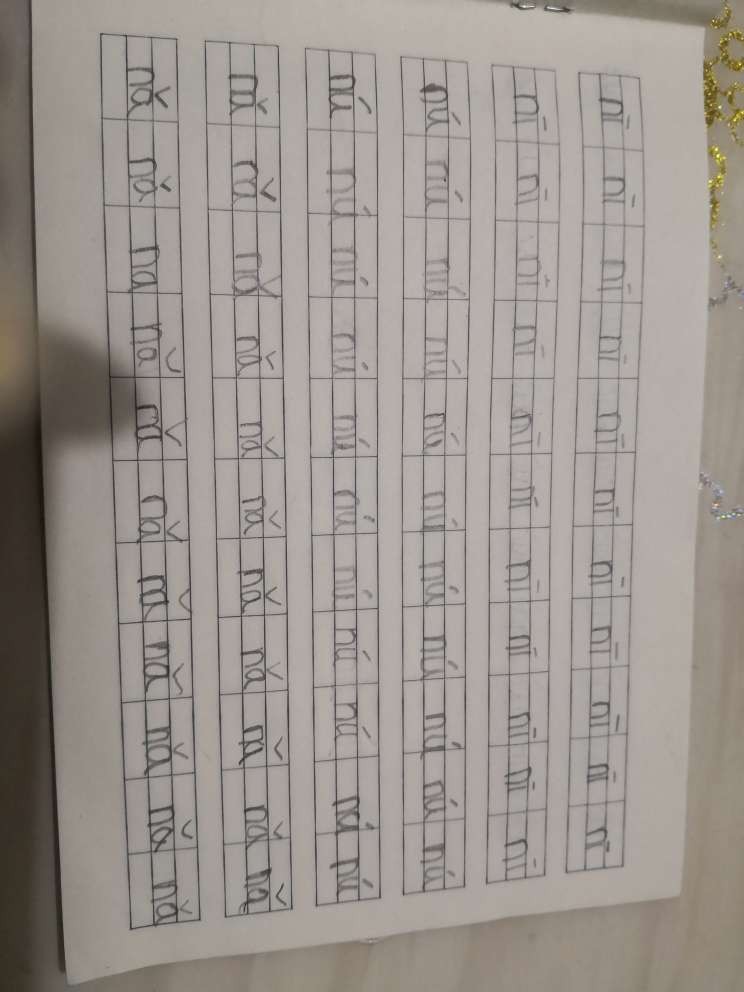 nī nī nī nī nī nī nī nī nī nī nī
nī nī nī nī nī nī nī nī nī nī nī
nú nú nú nú nú nú nú nú nú nú nú
nú nú nú nú nú nú nú nú nú nú nú
nǎ nǎ nǎ nǎ nǎ nǎ nǎ nǎ nǎ nǎ nǎ
nǎ nǎ na nǎ nǎ nǎ nǎ nǎ nǎ nǎ nǎ